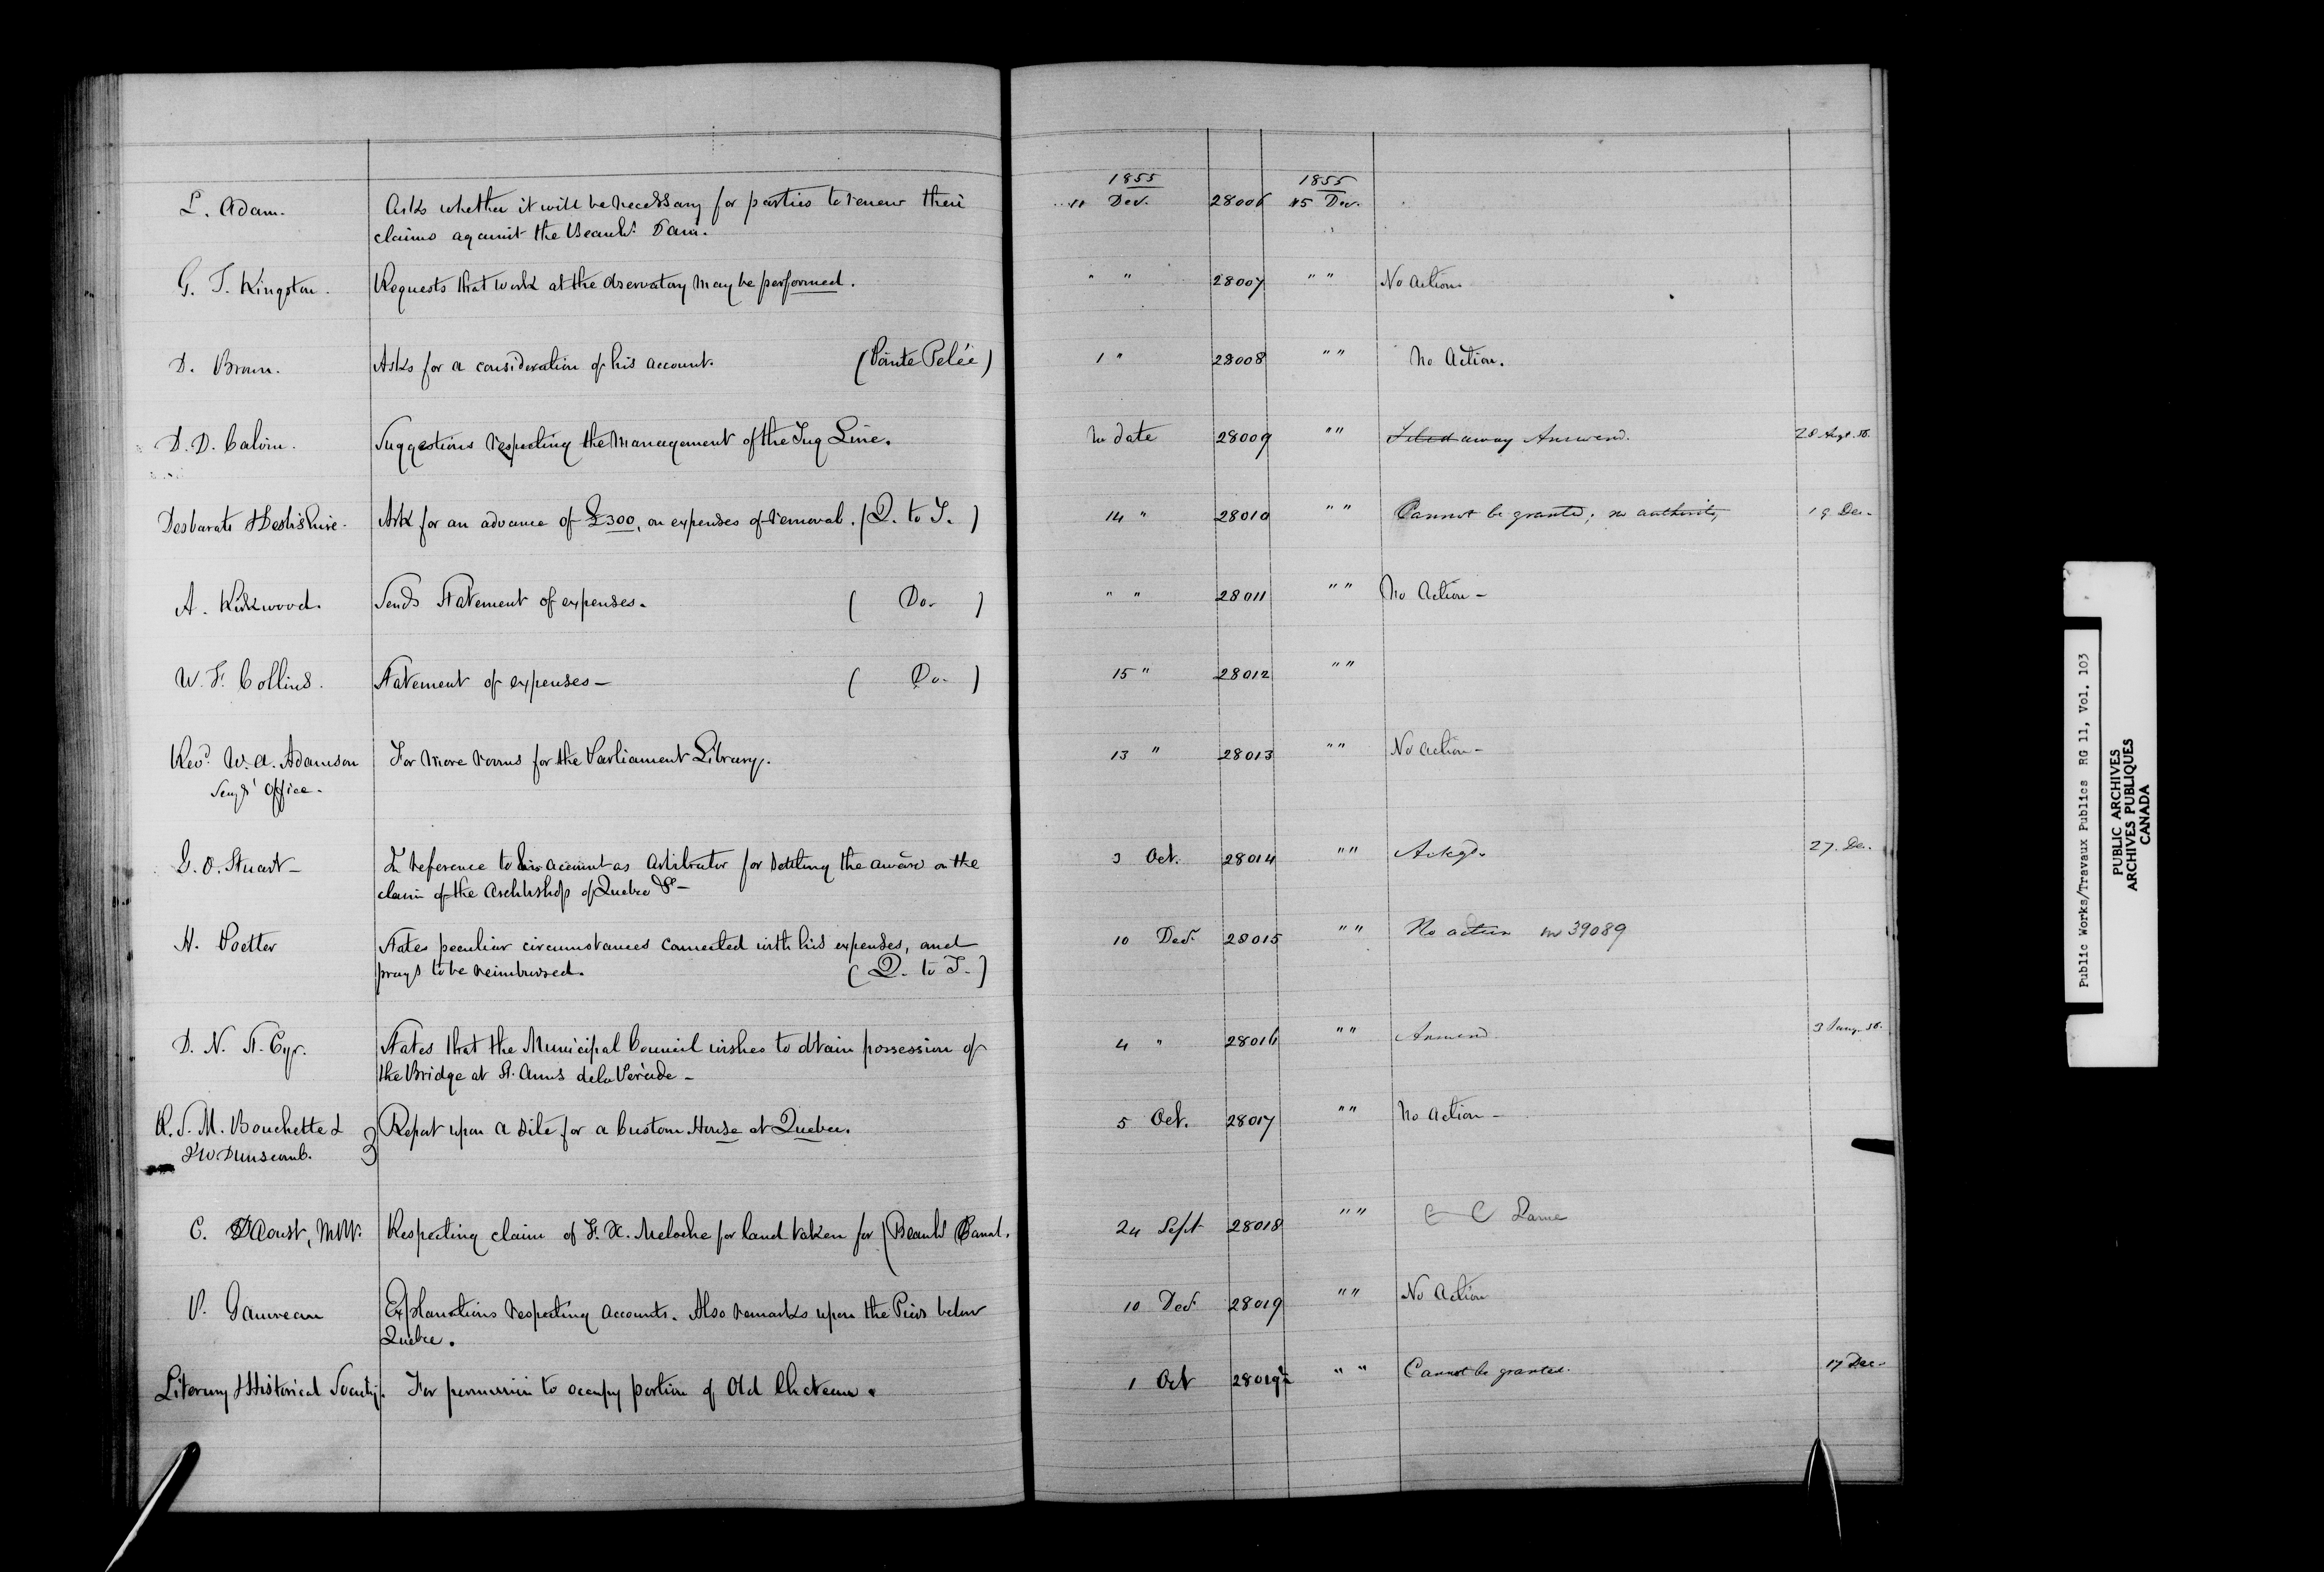 1855 1855
L. Adam. Asks whether it will be necessary for parties to renew their 11 Dec. 28006 15 Dec.
claims against the Beauhs. Dam.
G. T. Kingston. Requests that work at the Observatory may be performed. " " 28007 " " No Action.
D. Brown. Asks for a consideration of his account. (Pointe Pelée) 1 " 28008 " " No Action.
D. D. Calvin. Suggestions respecting the management of the Tug Line. No date 28009 " " Filed away Answered. 28 Augt. 56.
Desbarats & Derbishire. Ask for an advance of £300, on expenses of removal. (Q. to T.) 14 " 28010 " " Cannot be granted; no authority, 19 Dec.
A. Kirkwood. Sends Statement of expenses. (Do.) " " 28011 " " No Action -
W. F. Collins. Statement of expenses - (Do.) 15 " 28012 " "
Revd. W. A. Adamson For more rooms for the Parliament Library. 13 " 28013 " " No action -
Office.
G. O. Stuart - In reference to his account as Arbitrator for settling the award on the 3 Oct. 28014 " " Ackgd. 27. Dec.
claim of the Archbishop of Quebec &c -
H. Poetter States peculiar circumstances connected with his expenses, and 10 Decr. 28015 " " No action 39089
prays to be reimbursed. (Q. to T.)
D. N. St. Cyr. States that the Municipal Council wishes to obtain possession of 4 " 28016 " " Answered 3 Jany. 56.
the Bridge at St. Anns de la Perade -
R. S. M. Bouchette & Report upon a site for a Custom House at Quebec. 5 Oct. 28017 " " No Action -
J W Dunscomb.
C. Daoust, MPP. Respecting claim of F. X. Meloche for land taken for (Beauhs Canal. 24 Sept 28018 " "
P. Gauvreau Explanations respecting accounts. Also remarks upon the Piers below 10 Decr. 28019 " " No Action
Quebec.
Literary & Historical Society. For permission to occupy portion of Old Chateau. 1 Oct 28019½ " " Cannot be granted. 17 Dec.
Public Works/Travaux Publics RG 11, Vol. 103
PUBLIC ARCHIVES
ARCHIVES PUBLIQUES
CANADA